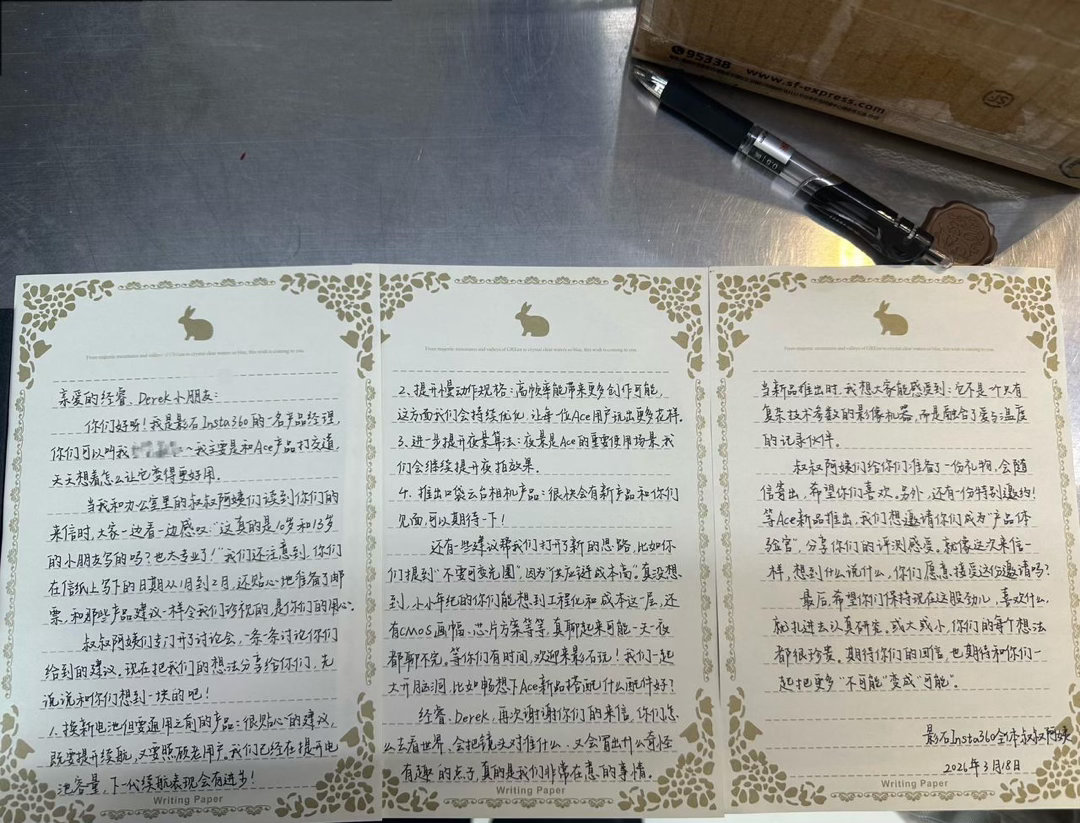 95338 www.sf-express.com
From majestic mountains and valleys of GREen to crystal clear waters so blue, this wish is coming to you.
亲爱的经睿、Derek小朋友:
你们好呀!我是影石Insta360的一名产品经理,
你们可以叫我 ~我主要是和Ace产品打交道,
天天想着怎么让它变得更好用。
当我和办公室里的叔叔阿姨们读到你们的
来信时,大家一边看一边感叹:"这真的是10岁和13岁
的小朋友写的吗?也太专业了!"我们还注意到,你们
在信纸上写下的日期从1月到2月,还贴心地准备了邮
票,和那些产品建议一样令我们珍视的,是你们的用心。
叔叔阿姨们专门开了讨论会,一条条讨论你们
给到的建议。现在把我们的想法分享给你们,先
说说和你们想到一块的吧!
1.换新电池但要通用之前的产品:很贴心的建议,
既要提升续航,又要照顾老用户。我们已经在提升电
池容量,下一代续航表现会有进步!
Writing Paper
From majestic mountains and valleys of GREen to crystal clear waters so blue, this wish is coming to you.
2.提升慢动作规格:高帧率能带来更多创作可能,
这方面我们会持续优化,让每一位Ace用户玩出更多花样。
3.进一步提升夜景算法:夜景是Ace的重要使用场景,我
们会继续提升夜拍效果。
4.推出口袋云台相机产品:很快会有新产品和你们
见面,可以期待一下!
还有一些建议帮我们打开了新的思路,比如你
们提到"不要可变光圈",因为"供应链成本高"。真没想
到,小小年纪的你们能想到工程化和成本这一层,还
有CMOS画幅、芯片方案等等,真聊起来可能一天一夜
都聊不完。等你们有时间,欢迎来影石玩!我们一起
大开脑洞,比如畅想下Ace新品搭配什么配件好?
经睿、Derek,再次谢谢你们的来信。你们怎
么去看世界,会把镜头对准什么,又会冒出什么奇怪
有趣的点子,真的是我们非常在意的事情。
Writing Paper
From majestic mountains and valleys of GREen to crystal clear waters so blue, this wish is coming to you.
当新品推出时,我想大家能感受到:它不是一个只有
复杂技术参数的影像机器,而是融合了爱与温度
的记录伙伴。
叔叔阿姨们给你们准备了一份礼物,会随
信寄出,希望你们喜欢。另外,还有一份特别邀约!
等Ace新品推出,我们想邀请你们成为"产品体
验官",分享你们的评测感受。就像这次来信一
样,想到什么说什么,你们愿意接受这份邀请吗?
最后,希望你们保持现在这股劲儿,喜欢什么,
就扎进去认真研究,或大或小,你们的每个想法
都很珍贵。期待你们的回信,也期待和你们一
起把更多"不可能"变成"可能"。
影石Insta360全体叔叔阿姨
2026年3月18日
Writing Paper